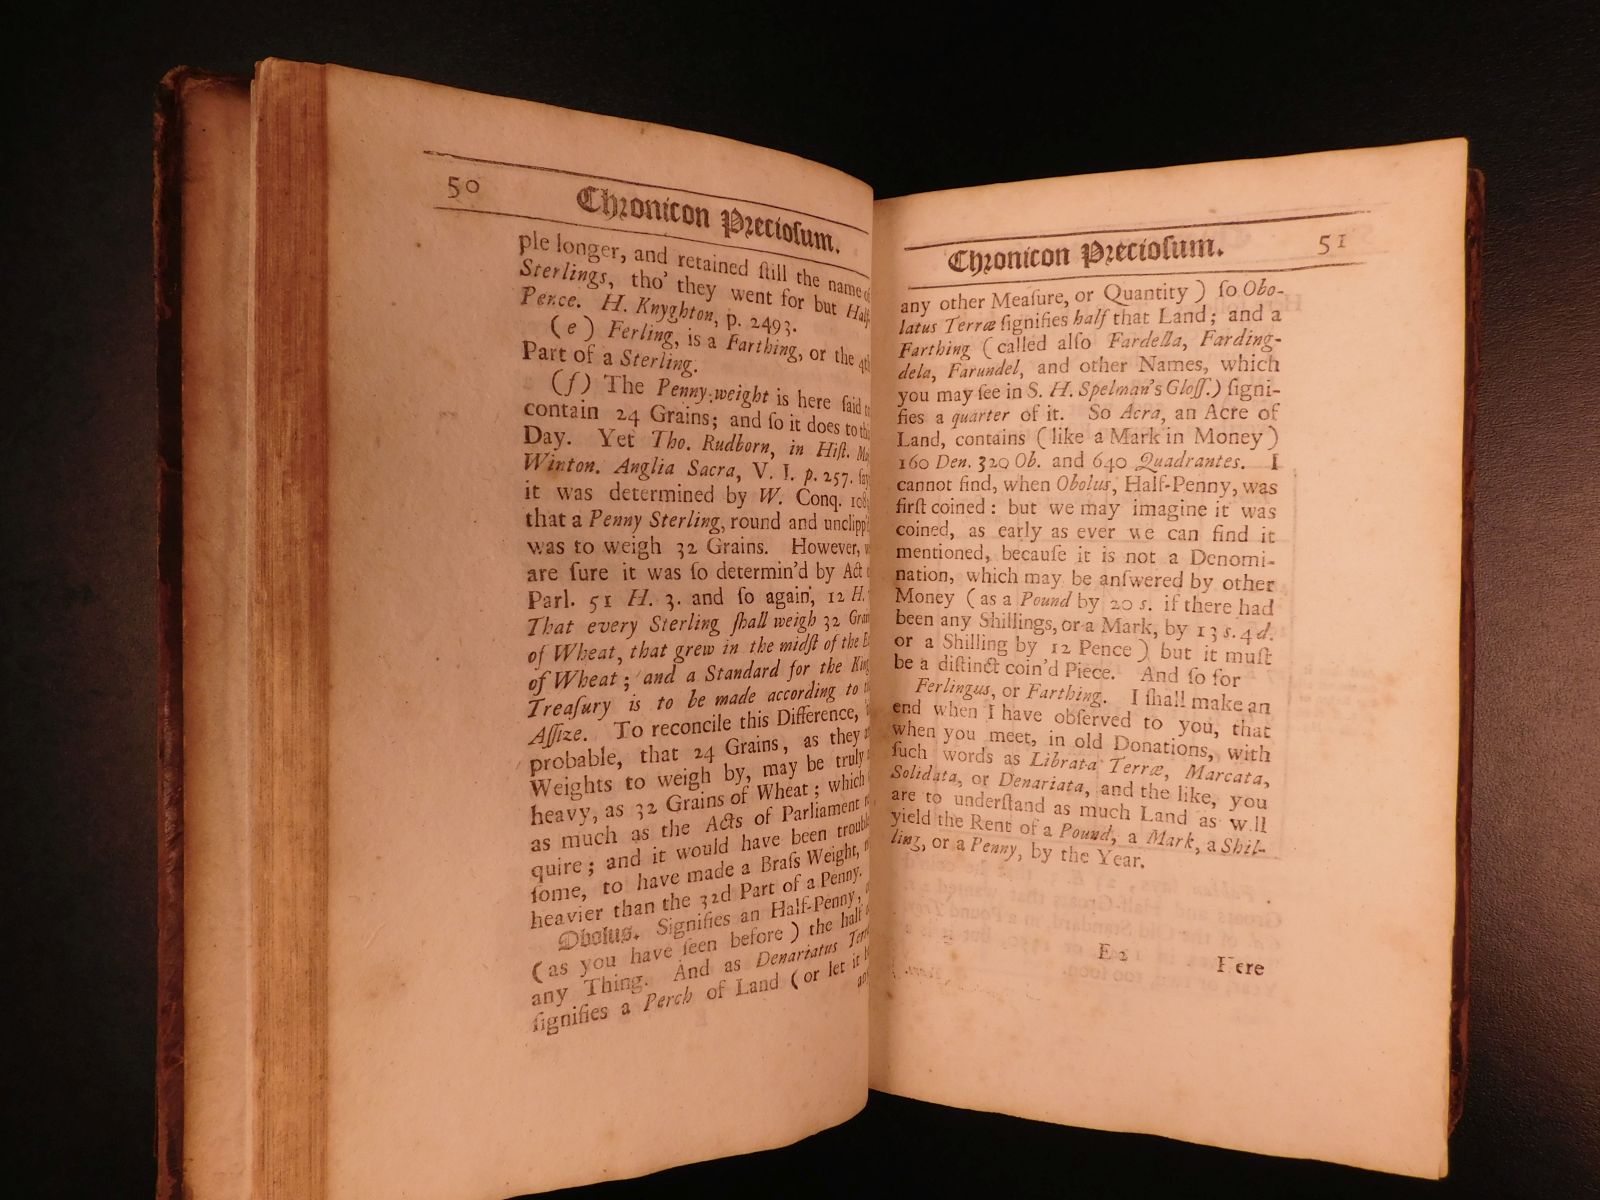 50 Chronicon Precioſum.
ple longer, and retained ſtill the name
Sterlings, tho' they went for but Half-
Pence. H. Knyghton, p. 2493.
(e) Ferling, is a Farthing, or the 4th
Part of a Sterling.
(f) The Penny-weight is here ſaid
contain 24 Grains; and ſo it does to
Day. Yet Tho. Rudborn, in Hiſt.
Winton. Anglia Sacra, V. I. p. 257.
it was determined by W. Conq.
that a Penny Sterling, round and unclipp'd
was to weigh 32 Grains. However,
are ſure it was ſo determin'd by Act
Parl. 51 H. 3. and ſo again, 12 H.
That every Sterling ſhall weigh 32
of Wheat, that grew in the midſt of the
of Wheat; and a Standard for the
Treaſury is to be made according to
Aſſize. To reconcile this Difference,
probable, that 24 Grains, as they
Weights to weigh by, may be truly
heavy, as 32 Grains of Wheat; which
as much as the Acts of Parliament
quire; and it would have been trouble
ſome, to have made a Braſs Weight,
heavier than the 32d Part of a Penny.
Obolus. Signifies an Half-Penny,
(as you have ſeen before) the half
any Thing. And as Denariatus
ſignifies a Perch of Land (or let it
Chronicon Precioſum. 51
any other Meaſure, or Quantity) ſo Obo-
latus Terræ ſignifies half that Land; and a
Farthing (called alſo Fardella, Farding-
dela, Farundel, and other Names, which
you may ſee in S. H. Spelman's Gloſſ.) ſigni-
fies a quarter of it. So Acra, an Acre of
Land, contains (like a Mark in Money)
160 Den. 320 Ob. and 640 Quadrantes. I
cannot find, when Obolus, Half-Penny, was
firſt coined: but we may imagine it was
coined, as early as ever we can find it
mentioned, becauſe it is not a Denomi-
nation, which may be anſwered by other
Money (as a Pound by 20 s. if there had
been any Shillings, or a Mark, by 13 s. 4 d.
or a Shilling by 12 Pence) but it muſt
be a diſtinct coin'd Piece. And ſo for
Ferlingus, or Farthing. I ſhall make an
end when I have obſerved to you, that
when you meet, in old Donations, with
ſuch words as Librata Terræ, Marcata,
Solidata, or Denariata, and the like, you
are to underſtand as much Land as will
yield the Rent of a Pound, a Mark, a Shil-
ling, or a Penny, by the Year.
E 2 Here